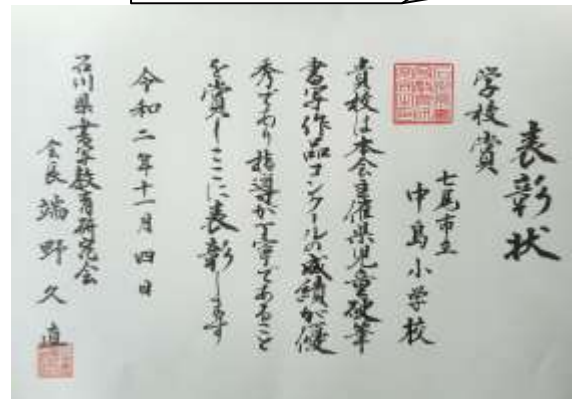 表彰状
学校賞
七尾市立
中島小学校
貴校は本会主催県児童硬筆
書写作品コンクールの成績が優
秀であり指導が丁寧であること
を賞しここに表彰します
令和二年十一月四日
石川県書写教育研究会
会長 端野久直